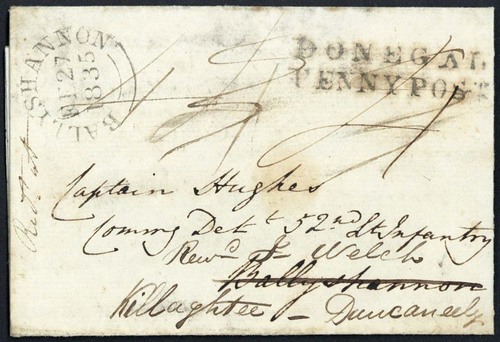 BALLYSHANNON
27
1835
DONEGAL
PENNY POST
Captain Hughes
Comming Det t 52nd Lt Infantry
Rew d J Welch
Ballyshannon
Killaghtee - Duncanely